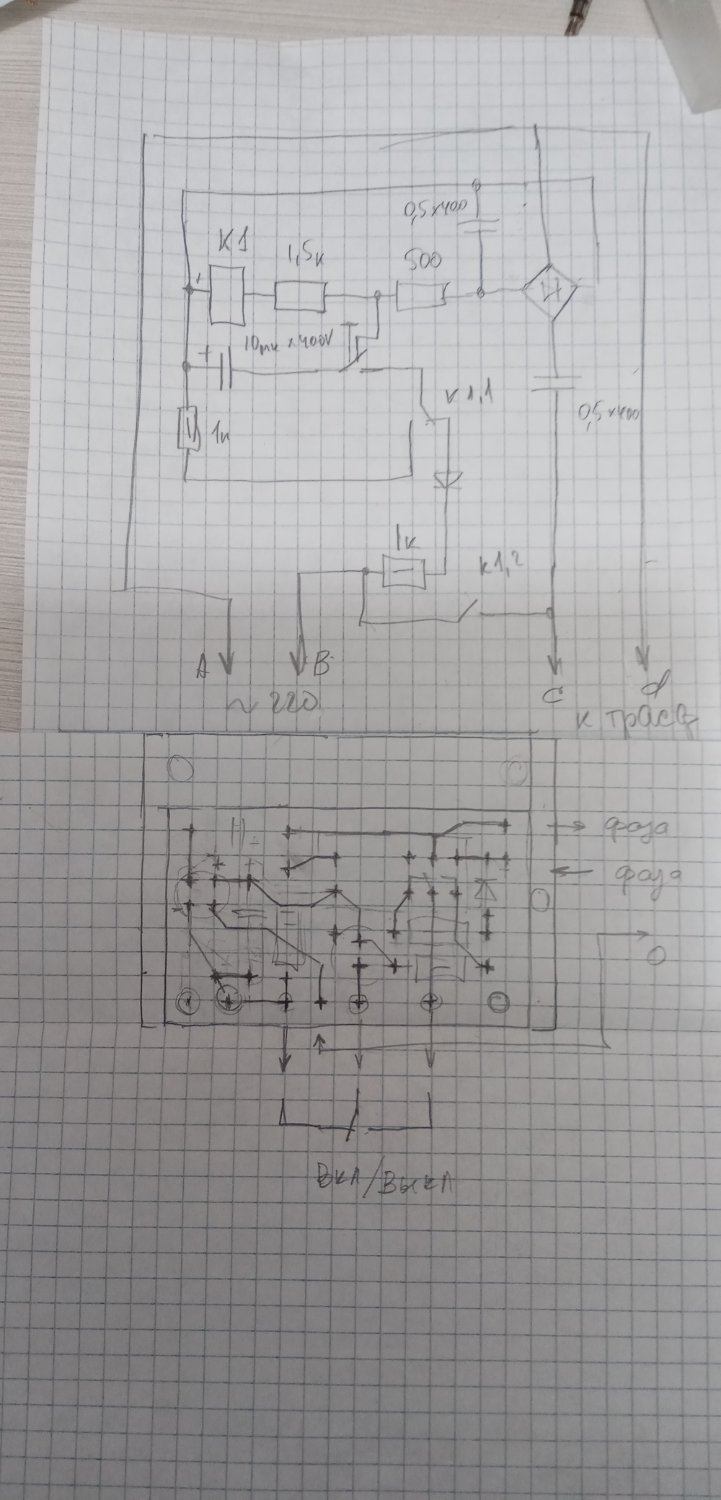 0,5х400
К1
1,5к
500
10мк х 400V
К1,1
0,5х400
1к
1к
К1,2
А
В
С
d
~ 220
к трасц
фаза
фаза
0
Вкл/Выкл